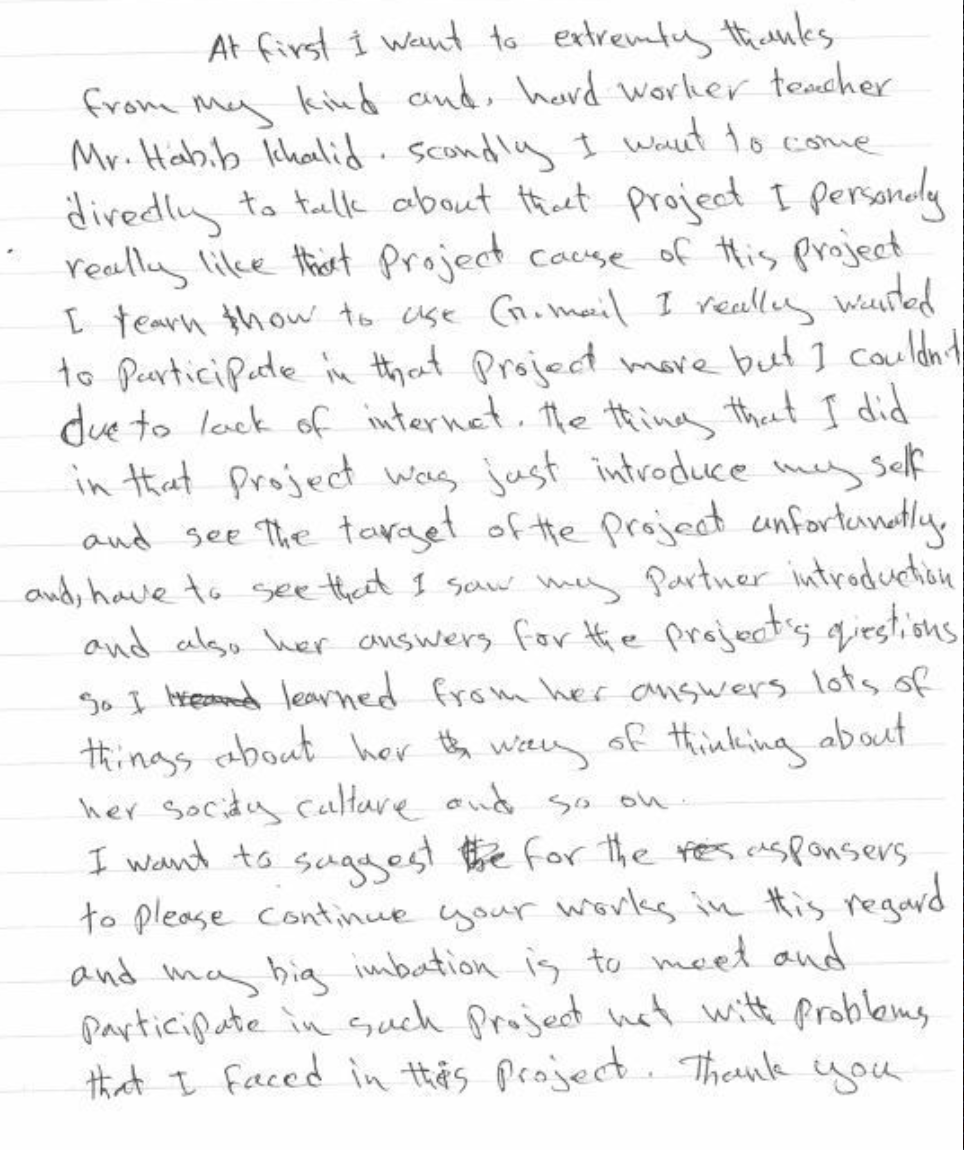 At first I want to extremty thanks
from my kind and, hard worker teacher
Mr. Habib Khalid. scondly I want to come
directly to talk about that project I personaly
really like that project cause of this project
I tearn show to use G.mail I really wanted
to participate in that project more but I couldn't
due to lack of internet. the thing that I did
in that project was just introduce my self
and see the target of the project unfortunatly.
and, have to see that I saw my partner introduction
and also her answers for the project's qiestions
so I learned from her answers lots of
things about her way of thinking about
her socity culture and so on.
I want to suggest for the asponsers
to please continue your works in this regard
and my big imbation is to meet and
participate in such project not with problems
that I faced in this project. Thank you